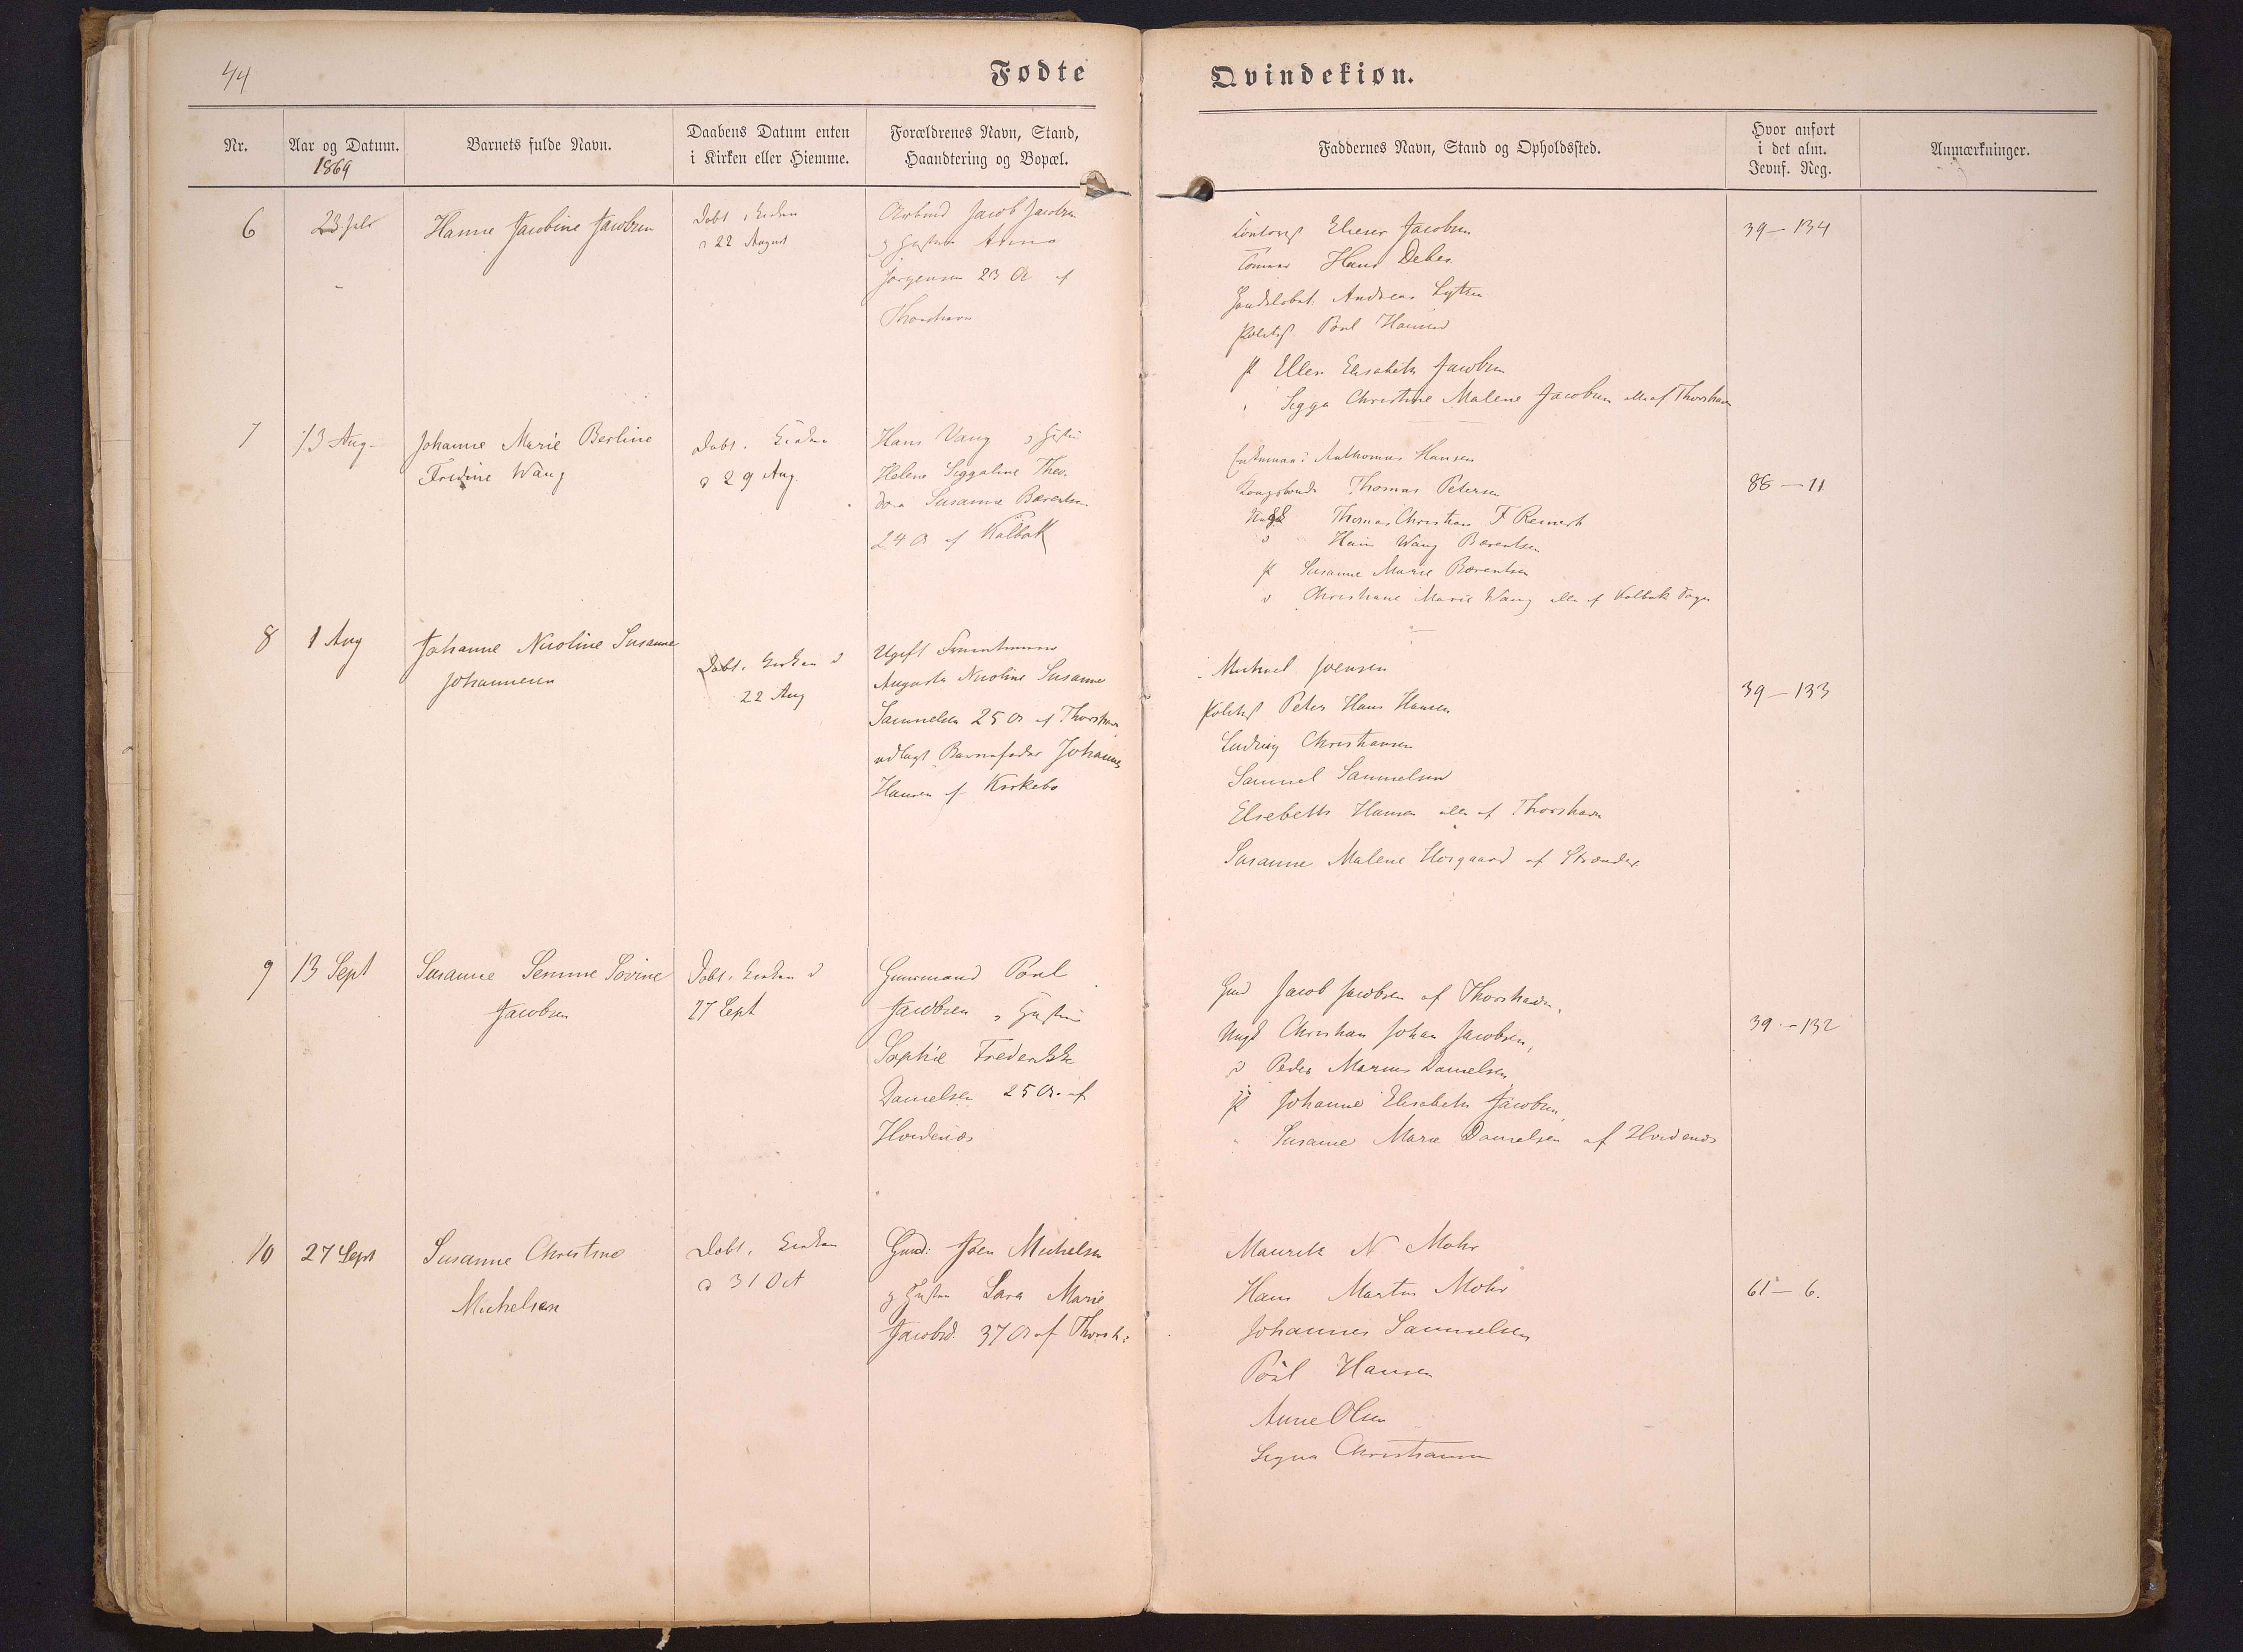 44
Fødte
Qvindekiøn.
Nr.
Aar og Datum.
1869
Barnets fulde Navn.
Daabens Datum enten
i Kirken eller Hiemme.
Forældrenes Navn, Stand,
Haandtering og Bopæl.
Faddernes Navn, Stand og Opholdssted.
Hvor anført
i det alm.
Jevnf. Reg.
Anmærkninger.
6
23 Juli
Hanne Jacobine Jacobsen
Døbt i Kirken
d 22 August
Arbmd Jacob Jacobsen
og Hustru Anna
Jørgensen 23 A af
Thorshavn
Elieser Jacobsen
Hans Debes
Andreas Lützen
Politif. Poul Hansen
p Ellen Elisabeth Jacobsen
Sigga Christine Malene Jacobsen alle af Thorshavn
39 – 134
7
13 Aug.
Johanne Marie Berline
Fredine Wang
Døbt i Kirken
d 29 Aug.
Hans Vang og Hustru
Helene Siggaline Theo-
dora Susanne Bærentsen
24 A af Kalbak
Enkemand Hansen
Kongsbonde Thomas Petersen
Ungk Thomas Christian F Reinert
d Hans Wang Bærentsen
p Susanne Marie Bærentsen
d Christiane Marie Wang alle af Kalbak
88 – 11
8
1 Aug
Johanne Nicoline Susanne
Johannesen
Døbt i Kirken d
22 Aug
Ugift
Augusta Nicoline Susanne
Samuelsen 25 A af Thorshavn
udlagt Barnefader Johannes
Hansen af Kirkebø
Michael Joensen
Politif Peter Hans Hansen
Ludvig Christiansen
Samuel Samuelsen
Elsebeth Hansen alle af Thorshavn
Susanne Malene af Strænder
39 – 133
9
13 Sept
Susanne Semine Sovine
Jacobsen
Døbt i Kirken d
27 Sept
Huusmand Poul
Jacobsen og Hustru
Sophie Frederikke
Danielsen 25 A. af
Hoidenæs
Hmd Jacob Jacobsen af Thorshavn,
Ungk Christian Johan Jacobsen,
d Peder Marius Danielsen,
p Johanne Elisabeth Jacobsen,
Susanne Marie Danielsen af Hvidenæs
39 – 132
10
27 Sept
Susanne Christine
Michelsen
Døbt i Kirken
d 31 Oct
Hmd: Joen Michelsen
og Hustru Sara Marie
Jacobsd. 37 A af Thorsh:
Maurits N. Mohr
Hans Martin Mohr
Johannes Samuelsen
Poul Hansen
Anne Olsen
Christiansen
61 – 6.